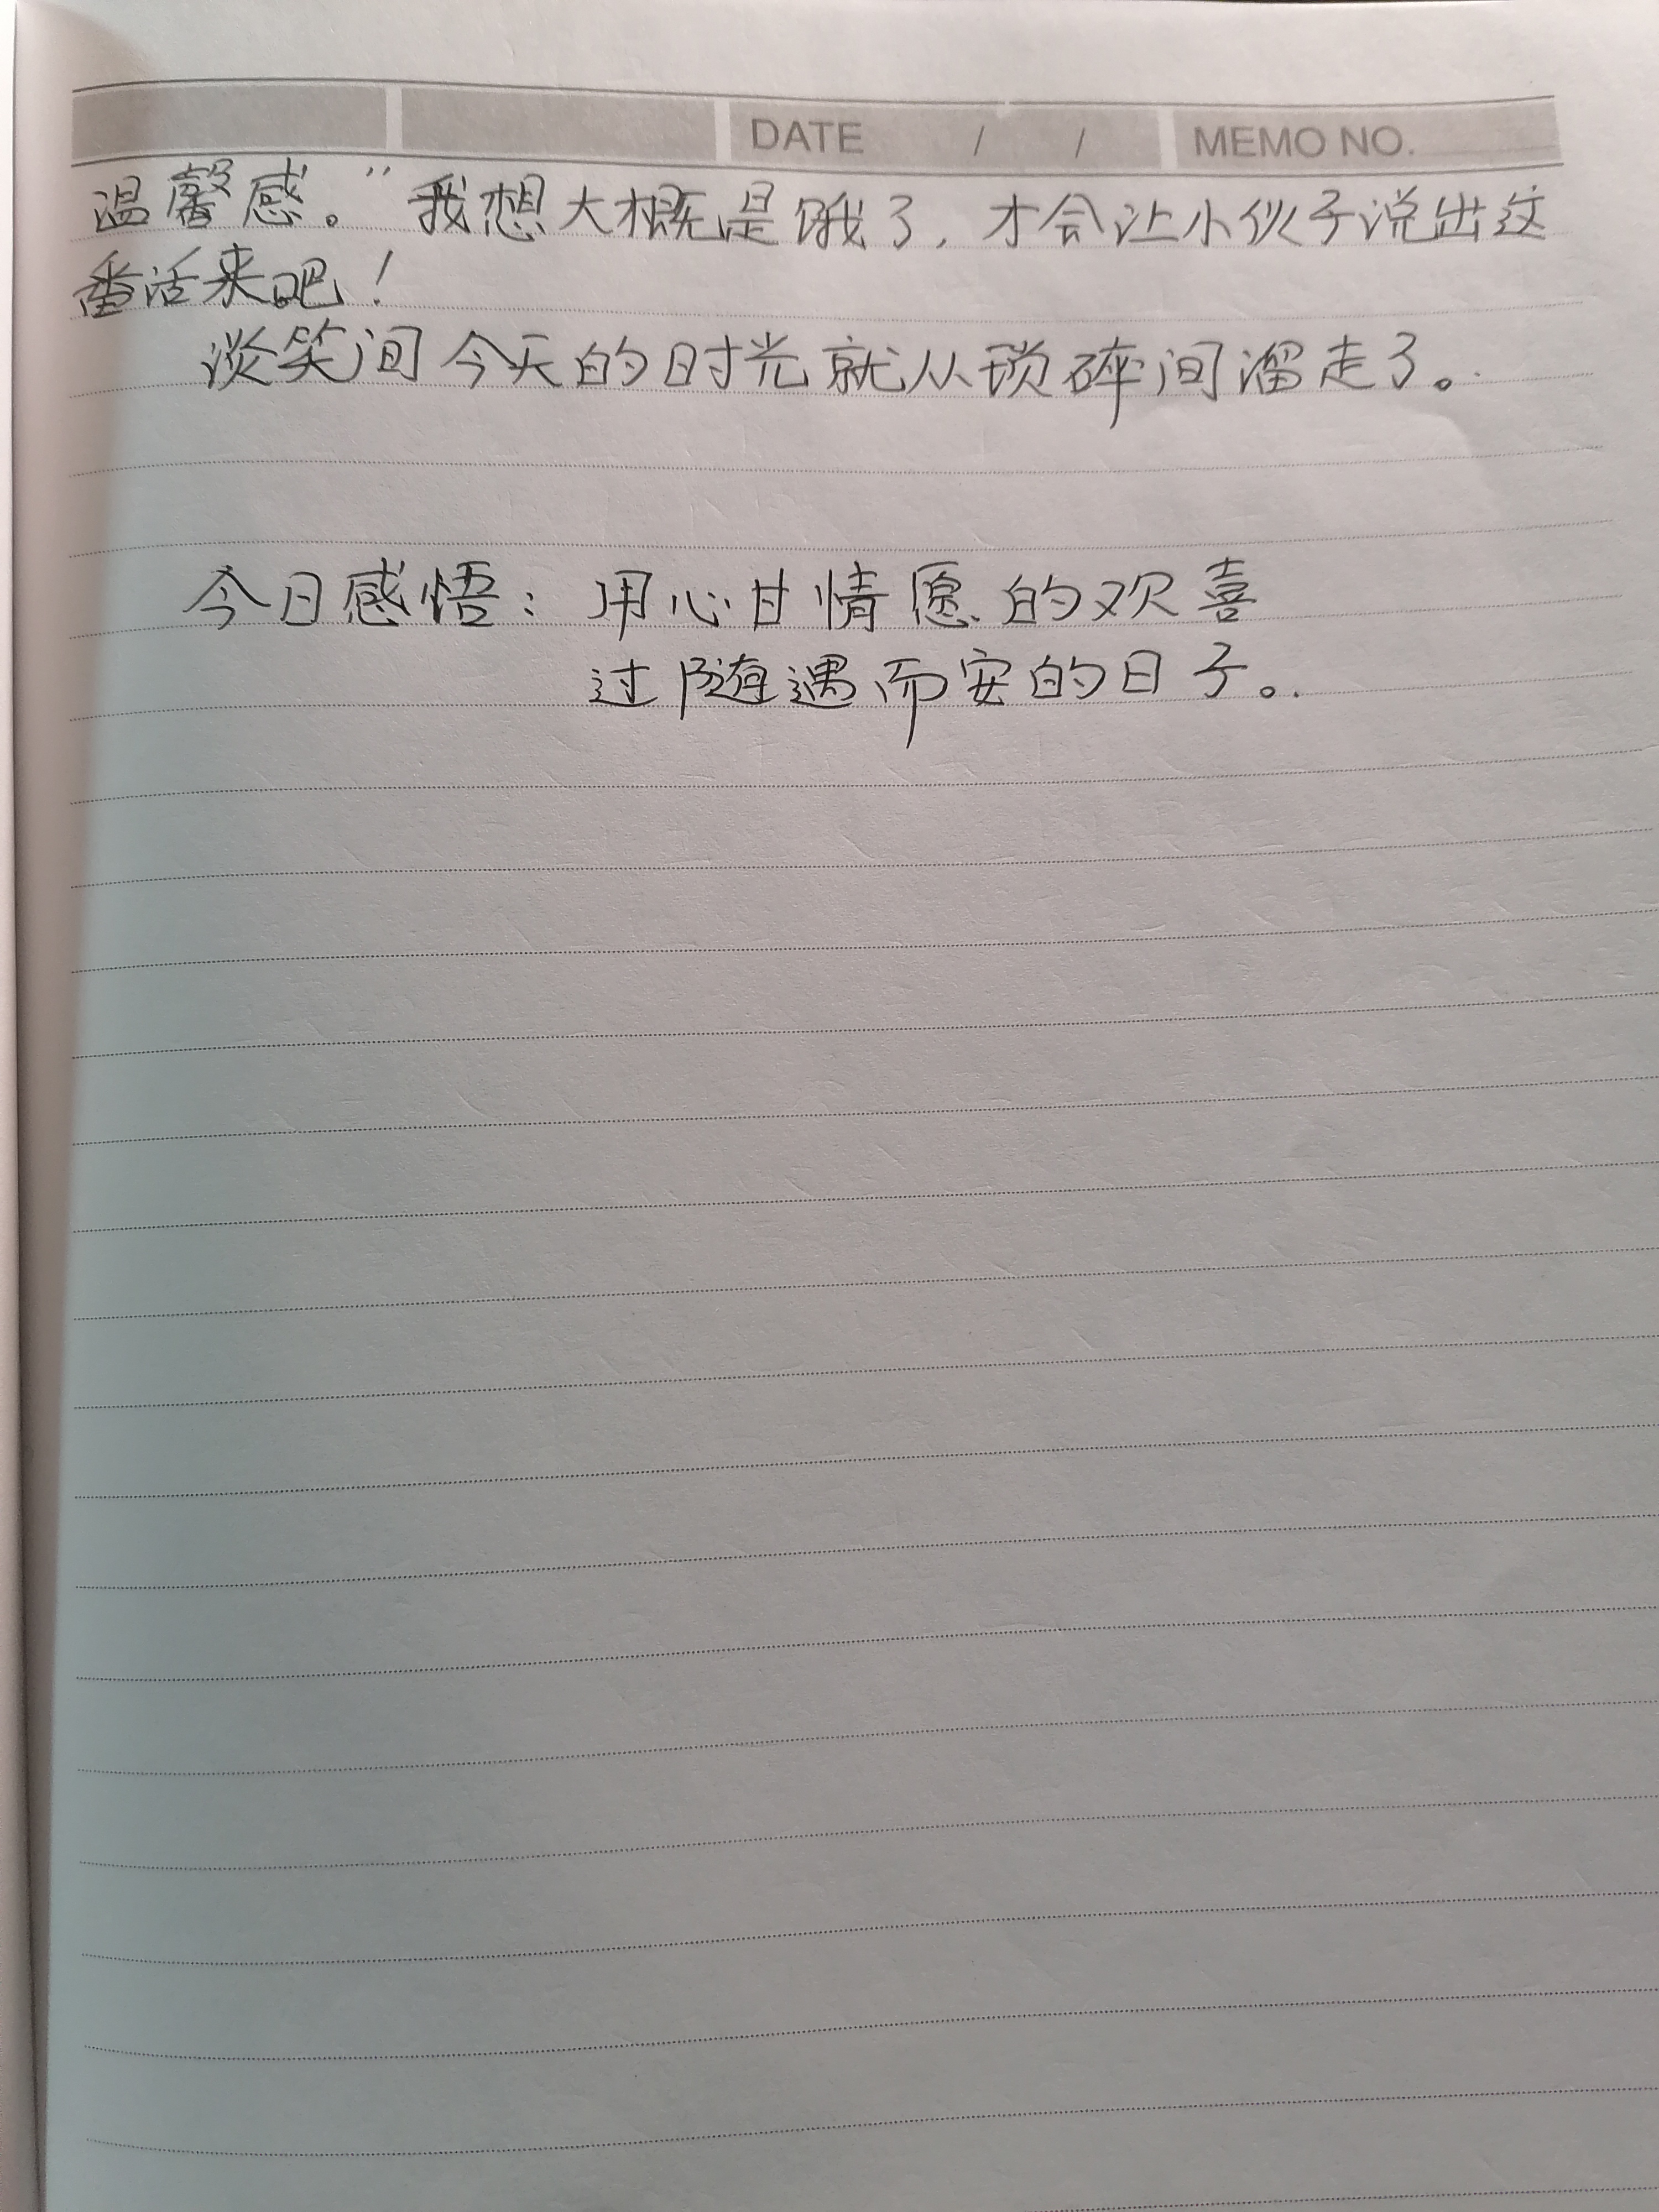 DATE / / MEMO NO.
温馨感。”我想大概是饿了，才会让小伙子说出这
番话来吧！
谈笑间今天的时光就从琐碎间溜走了。
今日感悟：用心甘情愿的欢喜
过随遇而安的日子。